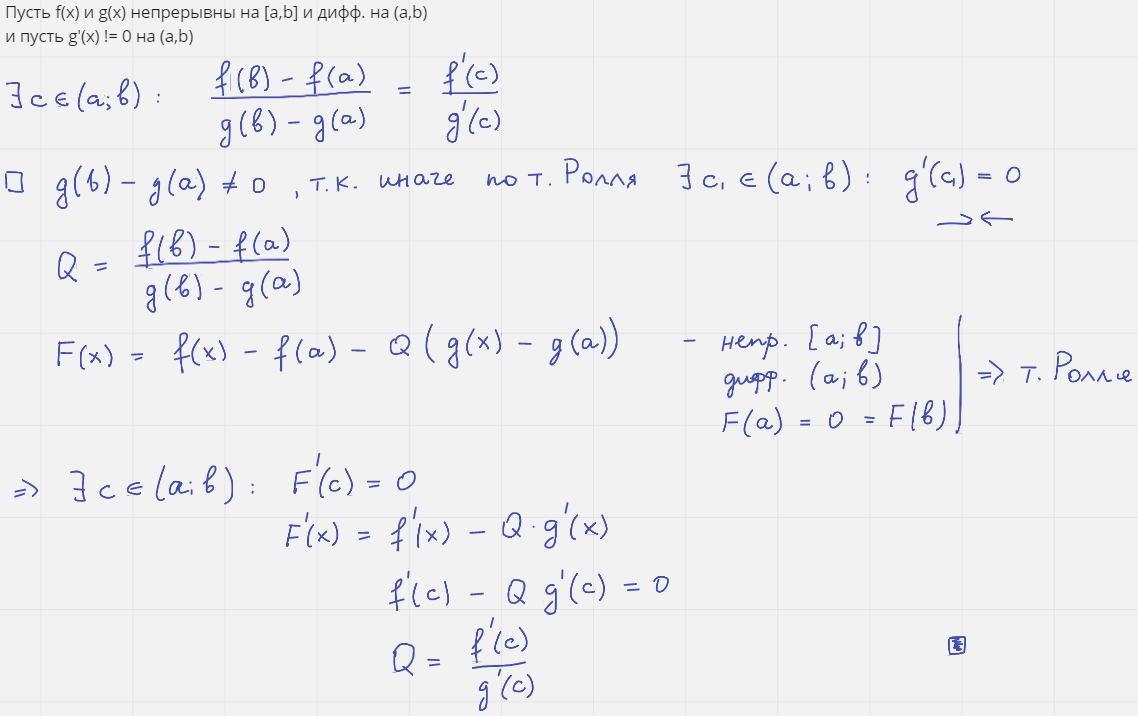 Пусть f(x) и g(x) непрерывны на [a,b] и дифф. на (a,b)
и пусть g'(x) != 0 на (a,b)
∃ c ∈ (a; b) : (f(b) − f(a)) / (g(b) − g(a)) = f'(c) / g'(c)
□ g(b) − g(a) ≠ 0 , т.к. иначе по т. Ролля ∃ c₁ ∈ (a; b) : g'(c₁) = 0
→←
Q = (f(b) − f(a)) / (g(b) − g(a))
F(x) = f(x) − f(a) − Q (g(x) − g(a)) − непр. [a; b]
дифф. (a; b)
F(a) = 0 = F(b)
⇒ т. Ролля
⇒ ∃ c ∈ (a; b) : F'(c) = 0
F'(x) = f'(x) − Q · g'(x)
f'(c) − Q g'(c) = 0
Q = f'(c) / g'(c)